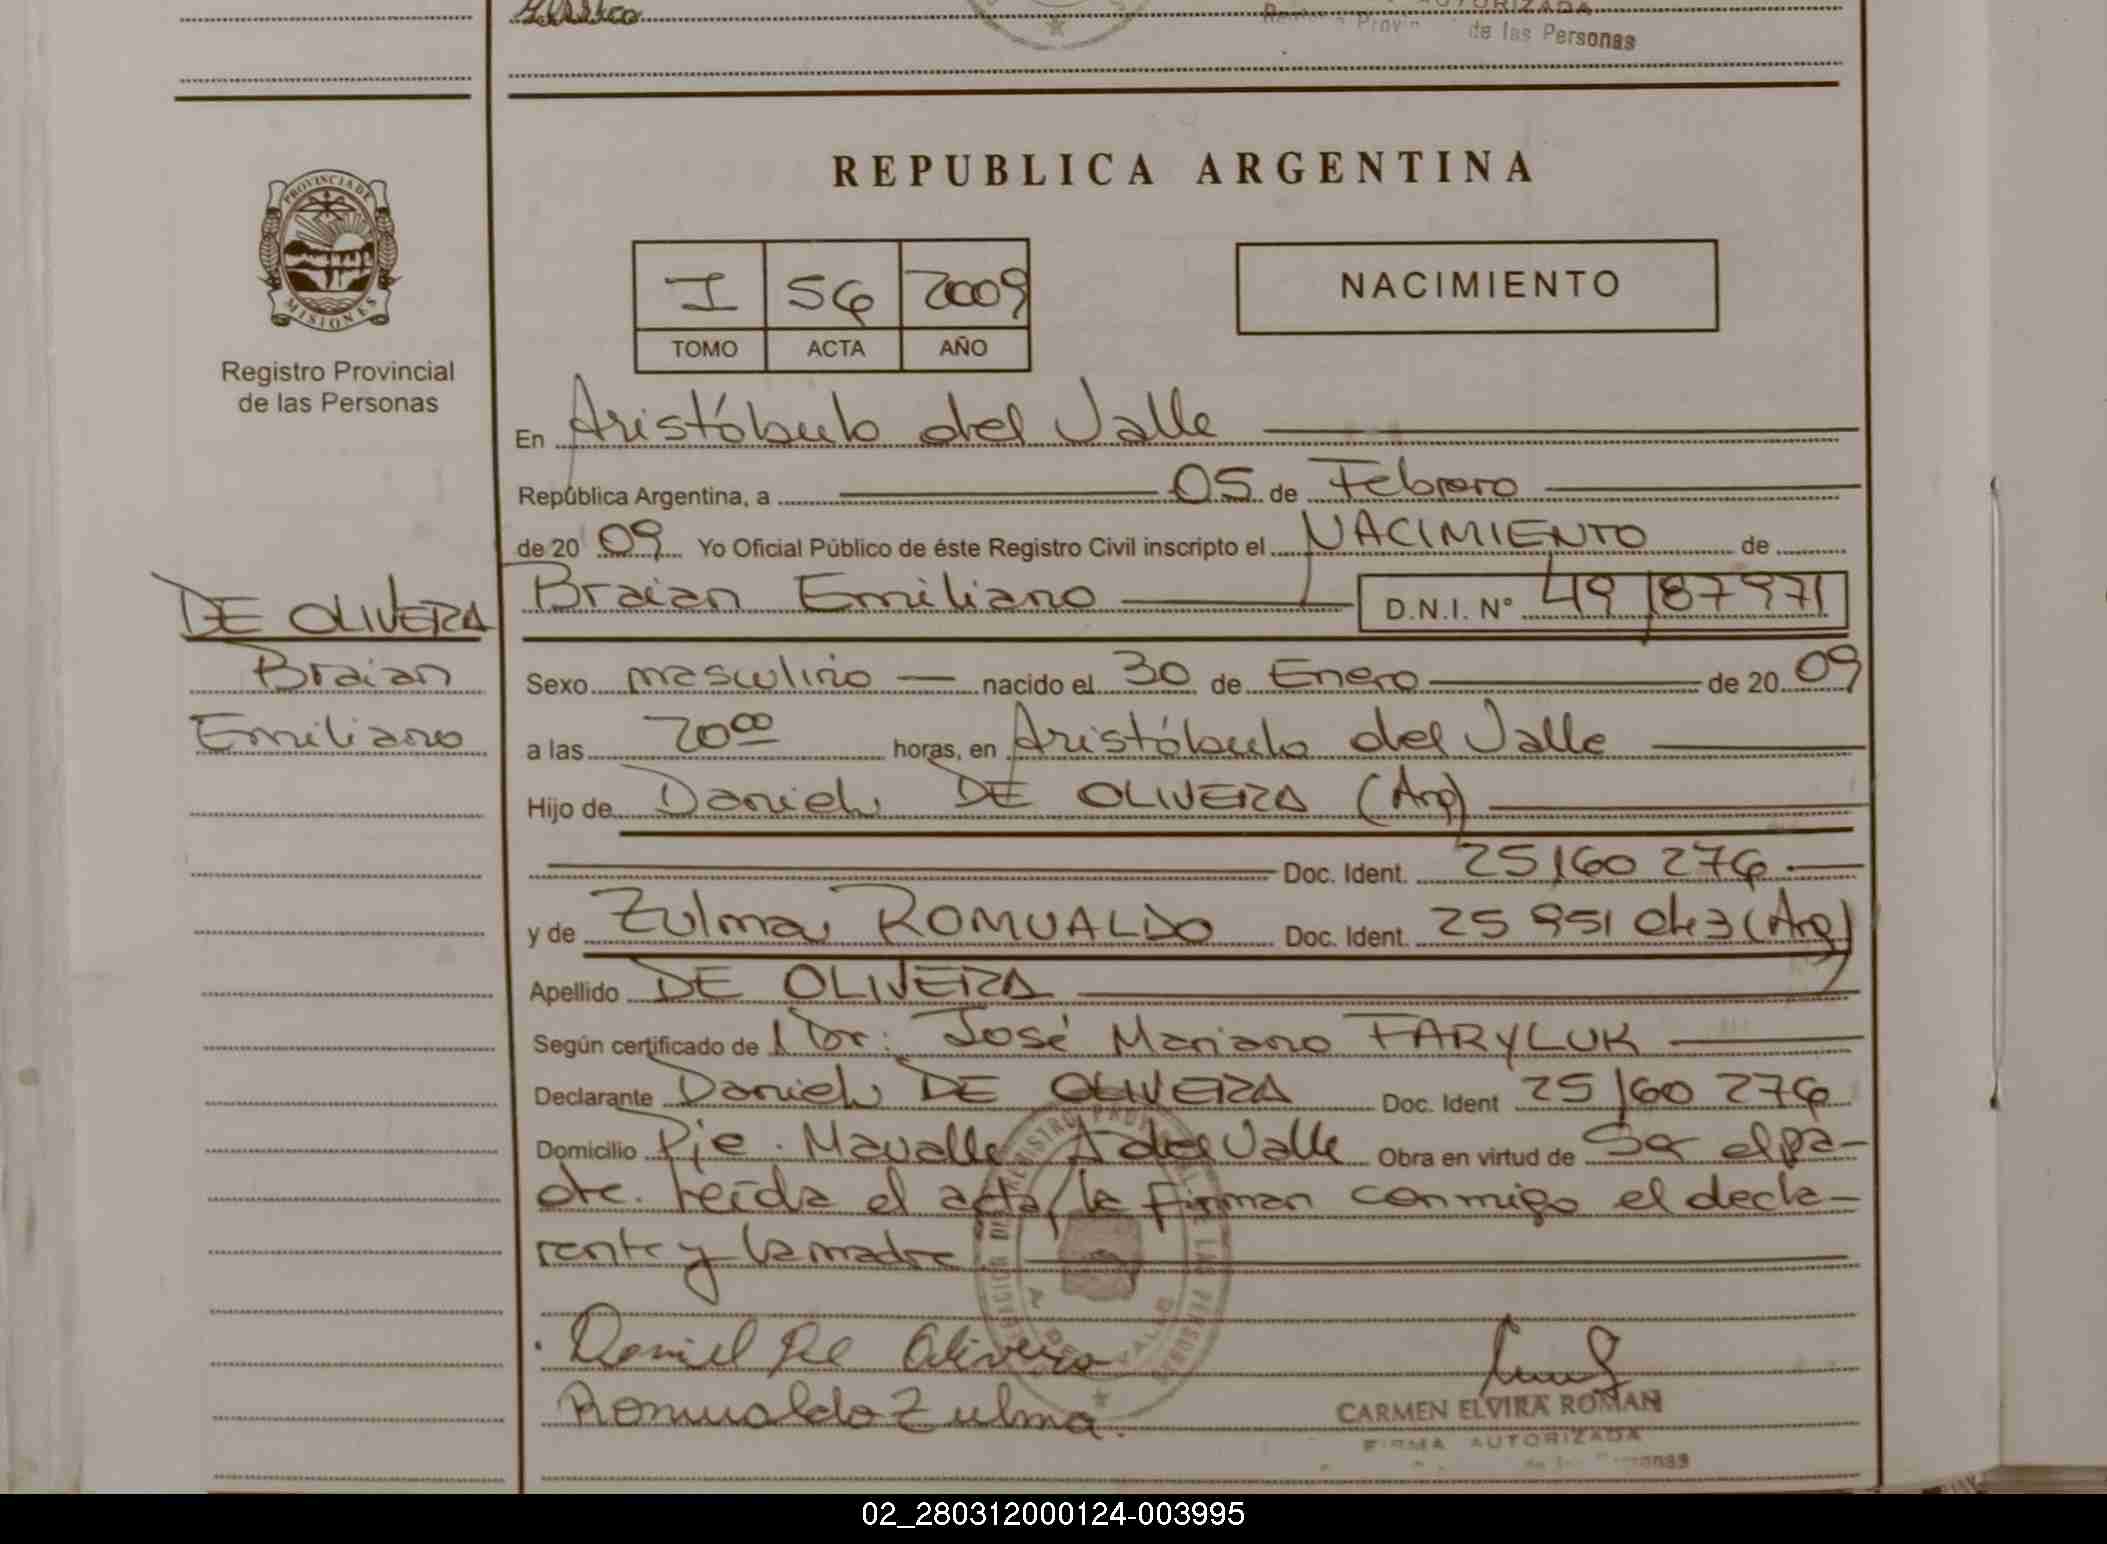 AUTORIZADA
de las Personas
REPUBLICA ARGENTINA
PROVINCIA DE
MISIONES
Registro Provincial
de las Personas
I 56 2009
TOMO ACTA AÑO
NACIMIENTO
En Aristóbulo del Valle
República Argentina, a 05 de Febrero
de 20 09 Yo Oficial Público de éste Registro Civil inscripto el NACIMIENTO de
Braian Emiliano D.N.I. Nº 49 187 971
DE OLIVERA
Braian
Emiliano
Sexo masculino nacido el 30 de Enero de 20 09
a las 20 00 horas, en Aristóbulo del Valle
Hijo de Daniel DE OLIVERA (Arg)
Doc. Ident. 25 160 276
y de Zulma ROMUALDO Doc. Ident. 25 951 043 (Arg)
Apellido DE OLIVERA
Según certificado de Dr. José Mariano FARYLUK
Declarante Daniel DE OLIVERA Doc. Ident 25 160 276
Domicilio Pje. Mavalle A del Valle Obra en virtud de Ser el pa-
dre. Leída el acta, la firman conmigo el decla-
rante y la madre
Daniel De Olivera
Romualdo Zulma.
CARMEN ELVIRA ROMAN
FIRMA AUTORIZADA
02_280312000124-003995